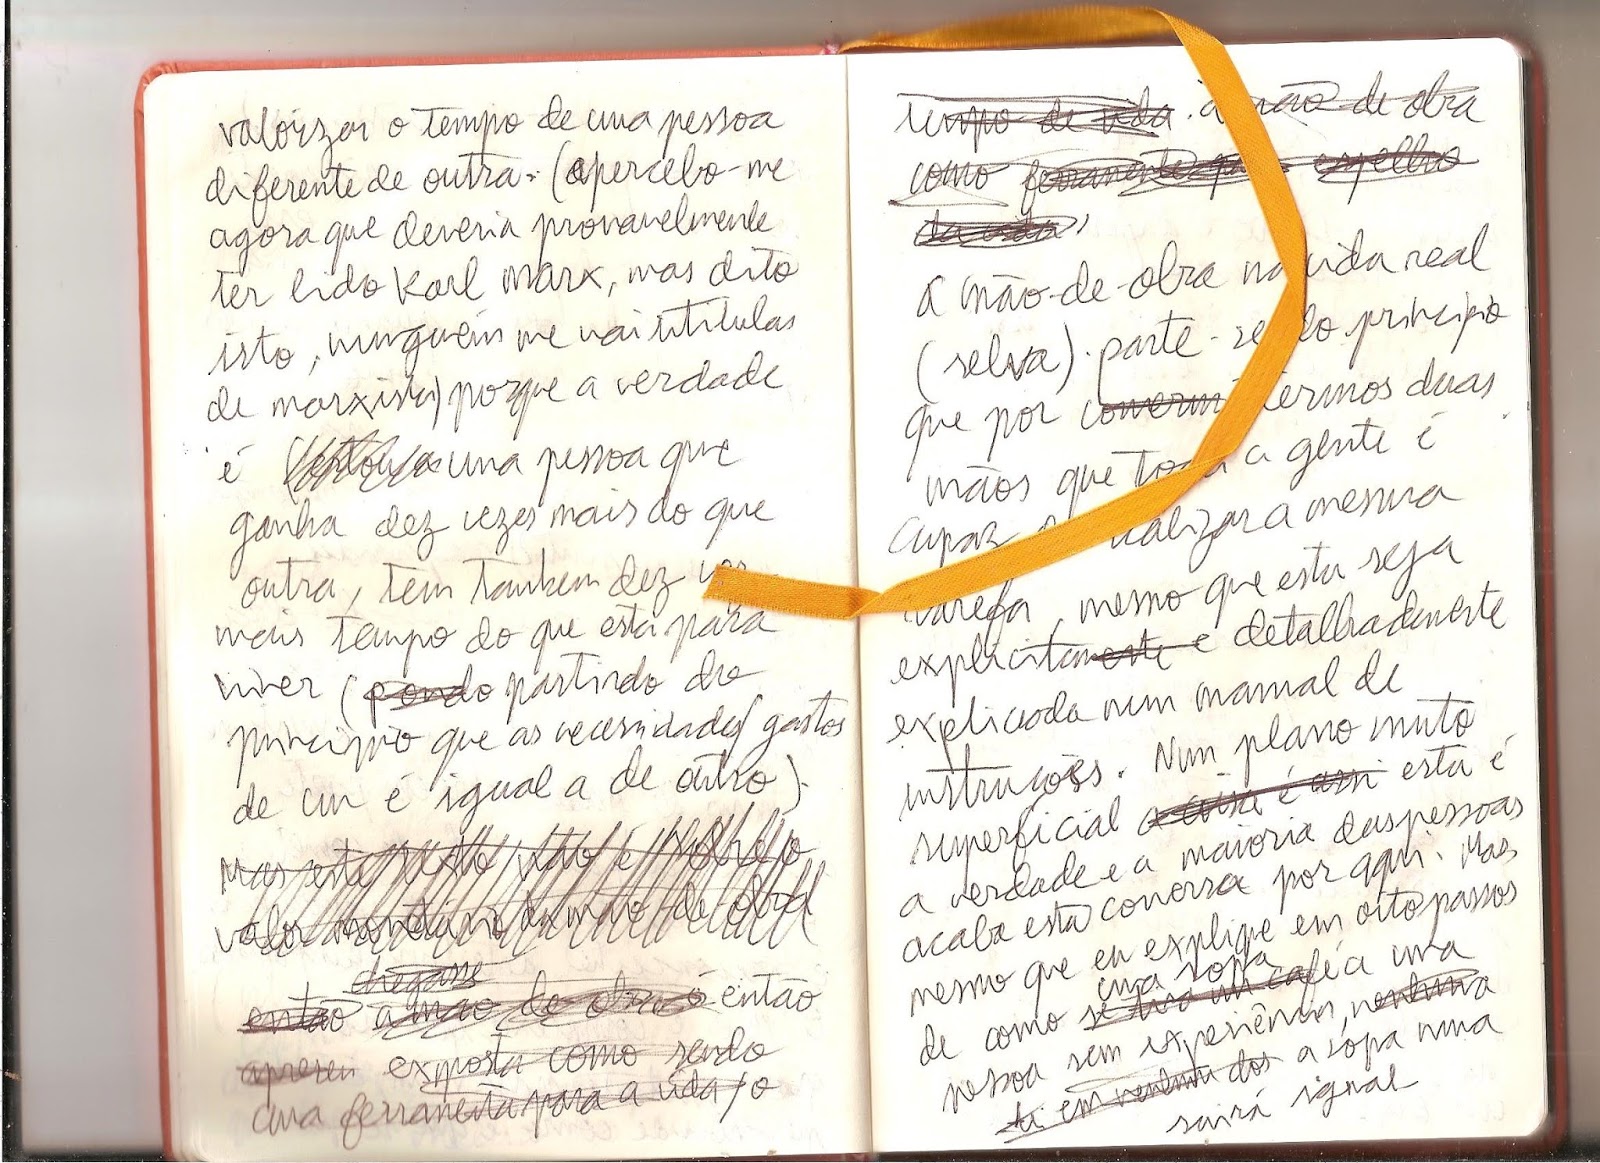 valorizar o tempo de uma pessoa
diferente de outra. (apercebo-me
agora que deveria provavelmente
ter lido Karl Marx, mas dito
isto, ninguém me vai
de marxista) porque a verdade
é uma pessoa que
ganha dez vezes mais do que
outra, tem tambem dez
mais tempo do que esta para
viver (pondo partindo do
principio que as necessidades/gastos
de um é igual a de outro).
Mas este não é
valor mão-de-obra
chegasse
então a mao de obra é então
exposta como sendo
uma ferramenta para a vida / o
tempo de vida. a mão de obra
como ferramenta espelho
da vida,
a mão-de-obra na vida real
(selva). parte-se do principio
que por termos duas
mãos que toda a gente é
capaz realizar a mesma
tarefa, mesmo que esta seja
explicitamente e detalhadamente
explicada num manual de
instruções. Num plano muito
superficial a coisa é assi esta é
a verdade e a maioria das pessoas
acaba esta conversa por aqui. Mas
mesmo que eu explique em oito passos
uma sopa
de como se tira um café a uma
pessoa sem experiência, nenhuma
a sopa
sairá igual